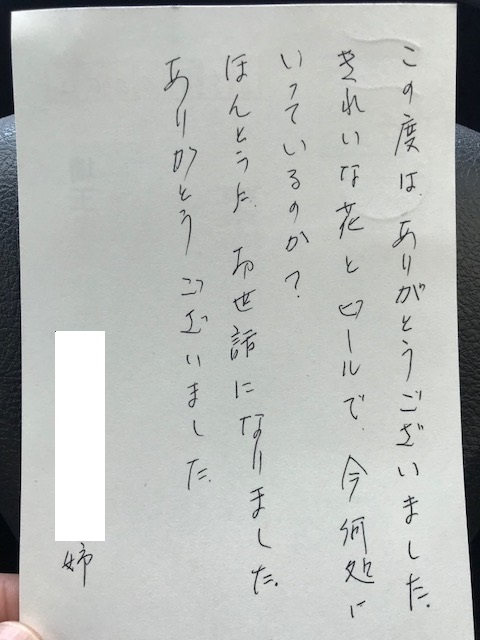 この度は、ありがとうございました。
きれいな花とビールで、今何処に
いっているのか?
ほんとうに、お世話になりました。
ありがとうございました。
姉